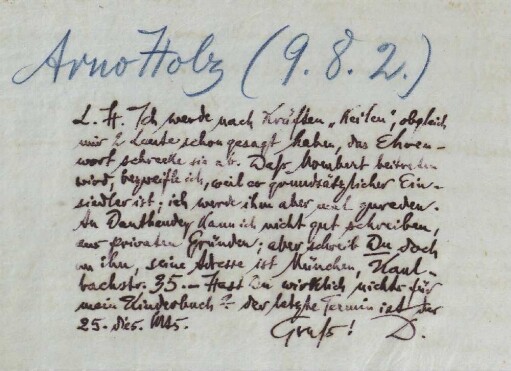 Arno Holz (9. 8. 2.)
L. H. Ich werde nach Kräften „keilen", obgleich
mir 2 Leute schon gesagt haben, das Ehren-
wort schrecke sie ab. Daß Mombert beitreten
wird, bezweifle ich, weil er grundsätzlicher Ein-
siedler ist; ich werde ihm aber zureden.
An Dauthendey kann ich nicht gut schreiben,
aus privaten Gründen; aber schreib Du doch
an ihn, seine Adresse ist München, Kaul-
bachstr. 35. — Hast Du wirklich nichts für
mein Kinderbuch? der letzte Termin ist der
25. dies. Mts.
Gruß! D.